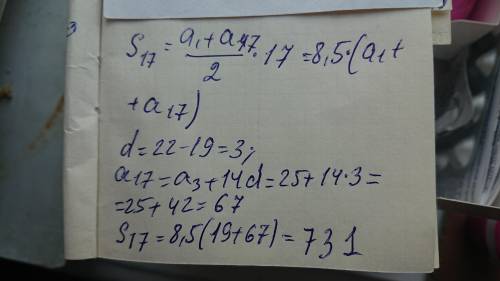 S₁₇ = (a₁ + a₁₇)/2 · 17 = 8,5 · (a₁ +
+ a₁₇)
d = 22 - 19 = 3;
a₁₇ = a₃ + 14d = 25 + 14 · 3 =
= 25 + 42 = 67
S₁₇ = 8,5 (19 + 67) = 731